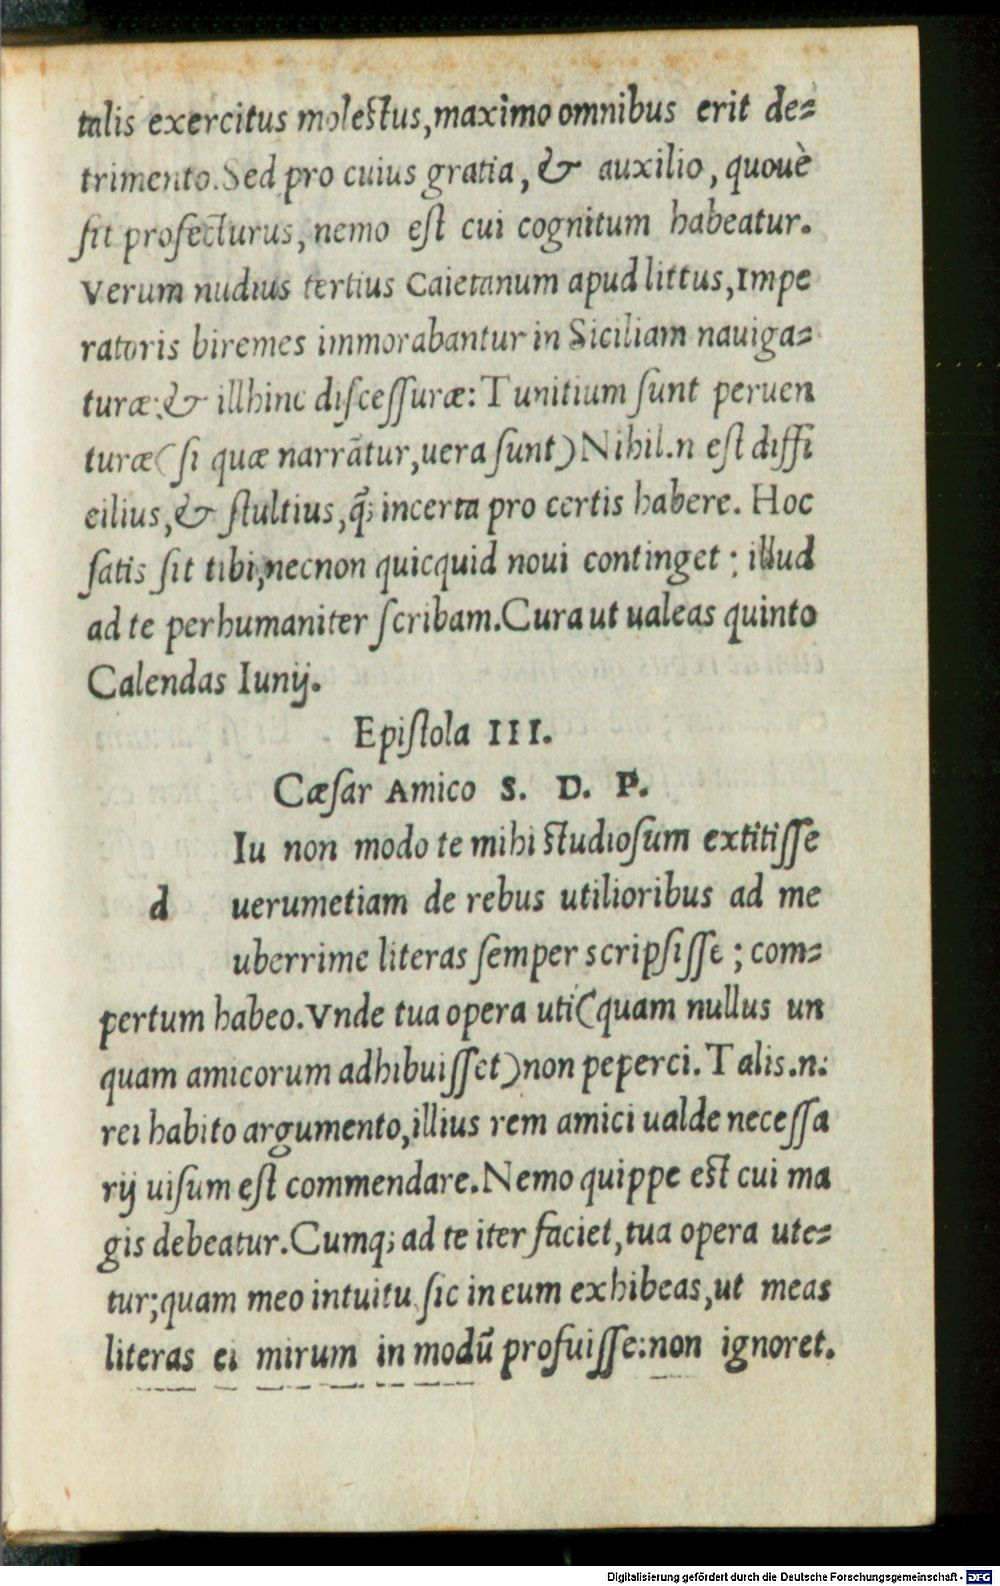 talis exercitus molestus,maximo omnibus erit de⸗
trimento.Sed pro cuius gratia, & auxilio, quouè
ſit profecturus, nemo eſt cui cognitum habeatur.
Verum nudius tertius Caietanum apud littus,Impe
ratoris biremes immorabantur in Siciliam nauiga⸗
turæ:& illhinc diſceſſuræ: Tunitium ſunt peruen
turæ(ſi quæ narrãtur,uera ſunt)Nihil.n eſt diffi
cilius,& ſtultius,q̃; incerta pro certis habere. Hoc
ſatis ſit tibi,necnon quicquid noui continget; illud
ad te perhumaniter ſcribam.Cura ut ualeas quinto
Calendas Iunij.
Epiſtola III.
Cæſar Amico S. D. P.
Iu non modo te mihi studioſum extitiſſe
d uerumetiam de rebus utilioribus ad me
uberrime literas ſemper scripſiſſe ; com⸗
pertum habeo.Vnde tua opera uti(quam nullus un
quam amicorum adhibuiſſet)non peperci. Talis.n:
rei habito argumento,illius rem amici ualde neceſſa
rij uiſum eſt commendare.Nemo quippe est cui ma
gis debeatur.Cumq; ad te iter faciet,tua opera ute⸗
tur;quam meo intuitu ſic in eum exhibeas,ut meas
literas ei mirum in modũ profuiſſe:non ignoret.
Digitalisierung gefördert durch die Deutsche Forschungsgemeinschaft - DFG